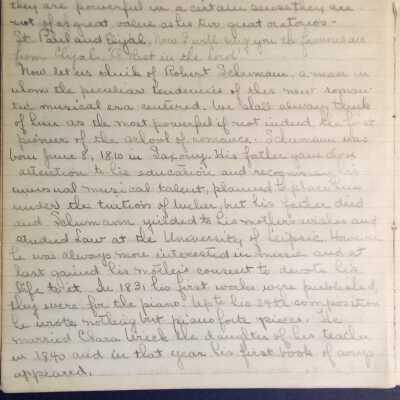 they are powerful in a certain sense they are
not of as great value as his two great oratorios -
St. Paul and Elijah. Now I will sing you the famous air
from Elijah. O Rest in the Lord.
Now let us think of Robert Schumann, a man in
whom the peculiar tendencies of this new roman-
tic musical era centered. We shall always think
of him as the most powerful if not indeed the first
pioneer of the school of romance. Schumann was
born June 8, 1810 in Saxony. His father gave close
attention to his education and recognizing his
unusual musical talent, planned to place him
under the tuition of Weber, but his father died
and Schumann yielded to his mother's wishes and
studied Law at the University of Leipsic. However
he was always more interested in music and at
last gained his mother's consent to devote his
life to it. In 1831 his first works were published,
they were for the piano. Up to his 24th composition
he wrote nothing but pianoforte pieces. He
married Clara Wieck the daughter of his teacher
in 1840 and in that year his first book of songs
appeared.